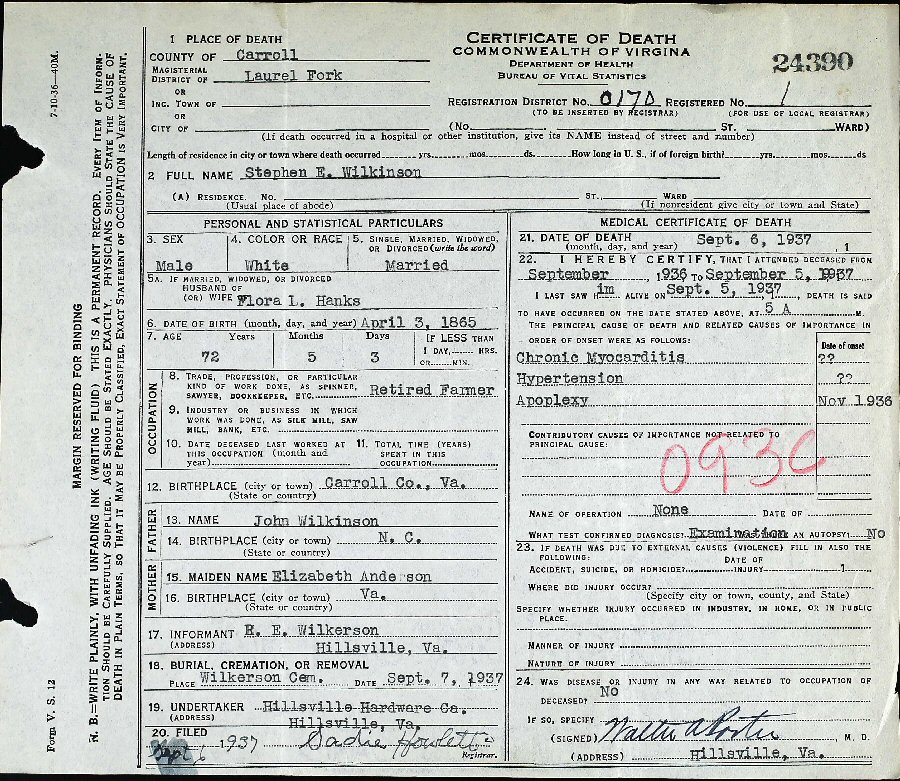 7-10-36—40M.
MARGIN RESERVED FOR BINDING
N. B.—WRITE PLAINLY, WITH UNFADING INK (WRITING FLUID) THIS IS A PERMANENT RECORD. EVERY ITEM OF INFORM-
TION SHOULD BE CAREFULLY SUPPLIED. AGE SHOULD BE STATED EXACTLY. PHYSICIANS SHOULD STATE THE CAUSE OF
DEATH IN PLAIN TERMS, SO THAT IT MAY BE PROPERLY CLASSIFIED, EXACT STATEMENT OF OCCUPATION IS VERY IMPORTANT.
Form V. S. 12
CERTIFICATE OF DEATH
COMMONWEALTH OF VIRGINA
DEPARTMENT OF HEALTH
BUREAU OF VITAL STATISTICS
24390
1 PLACE OF DEATH
COUNTY OF Carroll
MAGISTERIAL DISTRICT OF Laurel Fork
OR
INC. TOWN OF
OR
CITY OF
REGISTRATION DISTRICT NO. 017D REGISTERED NO. 1
(TO BE INSERTED BY REGISTRAR) (FOR USE OF LOCAL REGISTRAR)
(No. ST. WARD)
(If death occurred in a hospital or other institution, give its NAME instead of street and number)
Length of residence in city or town where death occurred yrs. mos. ds. How long in U. S., if of foreign birth? yrs. mos. ds
2 FULL NAME Stephen E. Wilkinson
(A) RESIDENCE. No. ST., WARD
(Usual place of abode) (If nonresident give city or town and State)
PERSONAL AND STATISTICAL PARTICULARS
3. SEX Male
4. COLOR OR RACE White
5. SINGLE, MARRIED, WIDOWED, OR DIVORCED (write the word) Married
5A. IF MARRIED, WIDOWED, OR DIVORCED
HUSBAND OF
(OR) WIFE Flora L. Hanks
6. DATE OF BIRTH (month, day, and year) April 3, 1865
7. AGE Years Months Days IF LESS THAN
72 5 3 1 DAY, HRS.
OR MIN.
OCCUPATION
8. TRADE, PROFESSION, OR PARTICULAR
KIND OF WORK DONE, AS SPINNER,
SAWYER, BOOKKEEPER, ETC. Retired Farmer
9. INDUSTRY OR BUSINESS IN WHICH
WORK WAS DONE, AS SILK MILL, SAW
MILL, BANK, ETC.
10. DATE DECEASED LAST WORKED AT THIS OCCUPATION (month and year)
11. TOTAL TIME (YEARS) SPENT IN THIS OCCUPATION
12. BIRTHPLACE (city or town) Carroll Co., Va.
(State or country)
FATHER
13. NAME John Wilkinson
14. BIRTHPLACE (city or town) N. C.
(State or country)
MOTHER
15. MAIDEN NAME Elizabeth Anderson
16. BIRTHPLACE (city or town) Va.
(State or country)
17. INFORMANT R. E. Wilkerson
(ADDRESS) Hillsville, Va.
18. BURIAL, CREMATION, OR REMOVAL
PLACE Wilkerson Cem. DATE Sept. 7, 1937
19. UNDERTAKER Hillsville Hardware Co.
(ADDRESS) Hillsville, Va.
20. FILED
Sept 6 1937 Sadie Howlett
Registrar.
MEDICAL CERTIFICATE OF DEATH
21. DATE OF DEATH Sept. 6, 1937
(month, day, and year) 1
22. I HEREBY CERTIFY, THAT I ATTENDED DECEASED FROM
September , 1936 TO September 5, 1937
I LAST SAW H im ALIVE ON Sept. 5, 1937, 1 , DEATH IS SAID
TO HAVE OCCURRED ON THE DATE STATED ABOVE, AT 5 A M.
THE PRINCIPAL CAUSE OF DEATH AND RELATED CAUSES OF IMPORTANCE IN
ORDER OF ONSET WERE AS FOLLOWS: Date of onset
Chronic Myocarditis ??
Hypertension ??
Apoplexy Nov 1936
CONTRIBUTORY CAUSES OF IMPORTANCE NOT RELATED TO
PRINCIPAL CAUSE:
093C
NAME OF OPERATION None DATE OF
WHAT TEST CONFIRMED DIAGNOSIS? Examination WAS THERE AN AUTOPSY? No
23. IF DEATH WAS DUE TO EXTERNAL CAUSES (VIOLENCE) FILL IN ALSO THE
FOLLOWING:
DATE OF
ACCIDENT, SUICIDE, OR HOMICIDE? INJURY 1
WHERE DID INJURY OCCUR?
(Specify city or town, county, and State)
SPECIFY WHETHER INJURY OCCURRED IN INDUSTRY, IN HOME, OR IN PUBLIC
PLACE.
MANNER OF INJURY
NATURE OF INJURY
24. WAS DISEASE OR INJURY IN ANY WAY RELATED TO OCCUPATION OF
DECEASED? No
IF SO, SPECIFY
(SIGNED) Walter A Porter M. D.
(ADDRESS) Hillsville, Va.